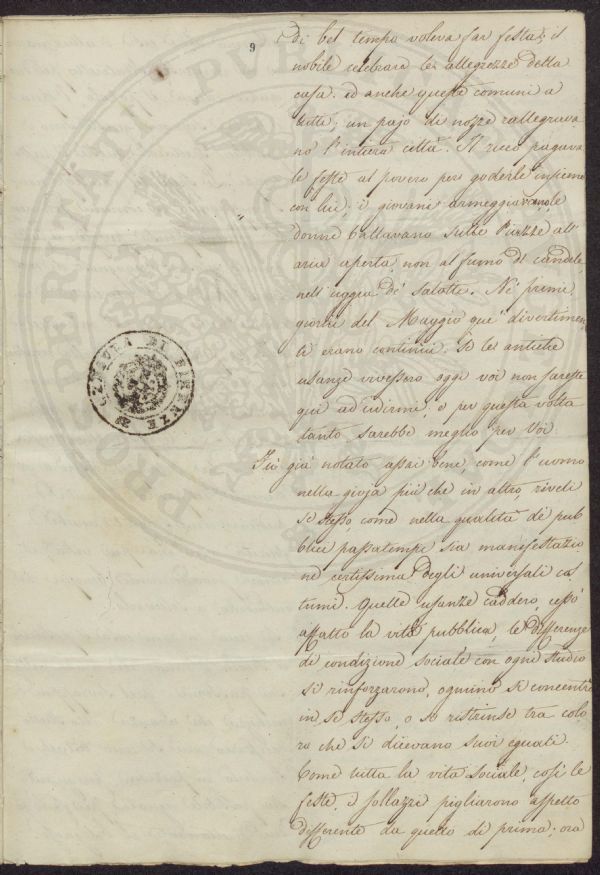 9
di bel tempo voleva far festa; il
nobile celebrare le allegrezze della
casa. ed anche queste comuni a
tutti; un pajo di nozze rallegrava
no l'intiera città. Il ricco pagava
le feste al povero per goderle insieme
con lui; i giovani armeggiavano, le
donne ballavano sulle Piazze all'
aria aperta, non al fumo di candele,
nell'uggia de' salotti. Ne' primi
giorni del Maggio que' divertimen
ti erano continui. Se le antiche
usanze vivessero oggi voi non sareste
qui ad udirmi, e per questa volta
tanto sarebbe meglio per Voi.
Fù già notato assai bene, come l'uomo
nella gioja più che in altro riveli
se stesso come nella qualità de' pub
blici passatempi sia manifestazio
ne certissima degli universali cos
tumi. Quelle usanze caddero, cessò
affatto la vita pubblica, le differenze
di condizione sociale con ogni studio
si rinforzarono, ognuno si concentrò
in se stesso, o si ristrinse tra colo
ro che si dicevano suoi eguali.
Come tutta la vita sociale, così le
feste, i sollazzi pigliarono aspetto
differente da quello di prima; ora
CENSURA DI FIRENZE
PROSPERITATI PVB